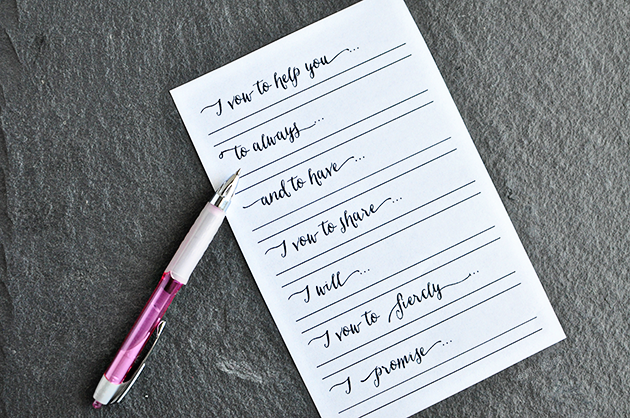 I vow to help you...
to always...
and to have...
I vow to share...
I will...
I vow to fiercly...
I promise...